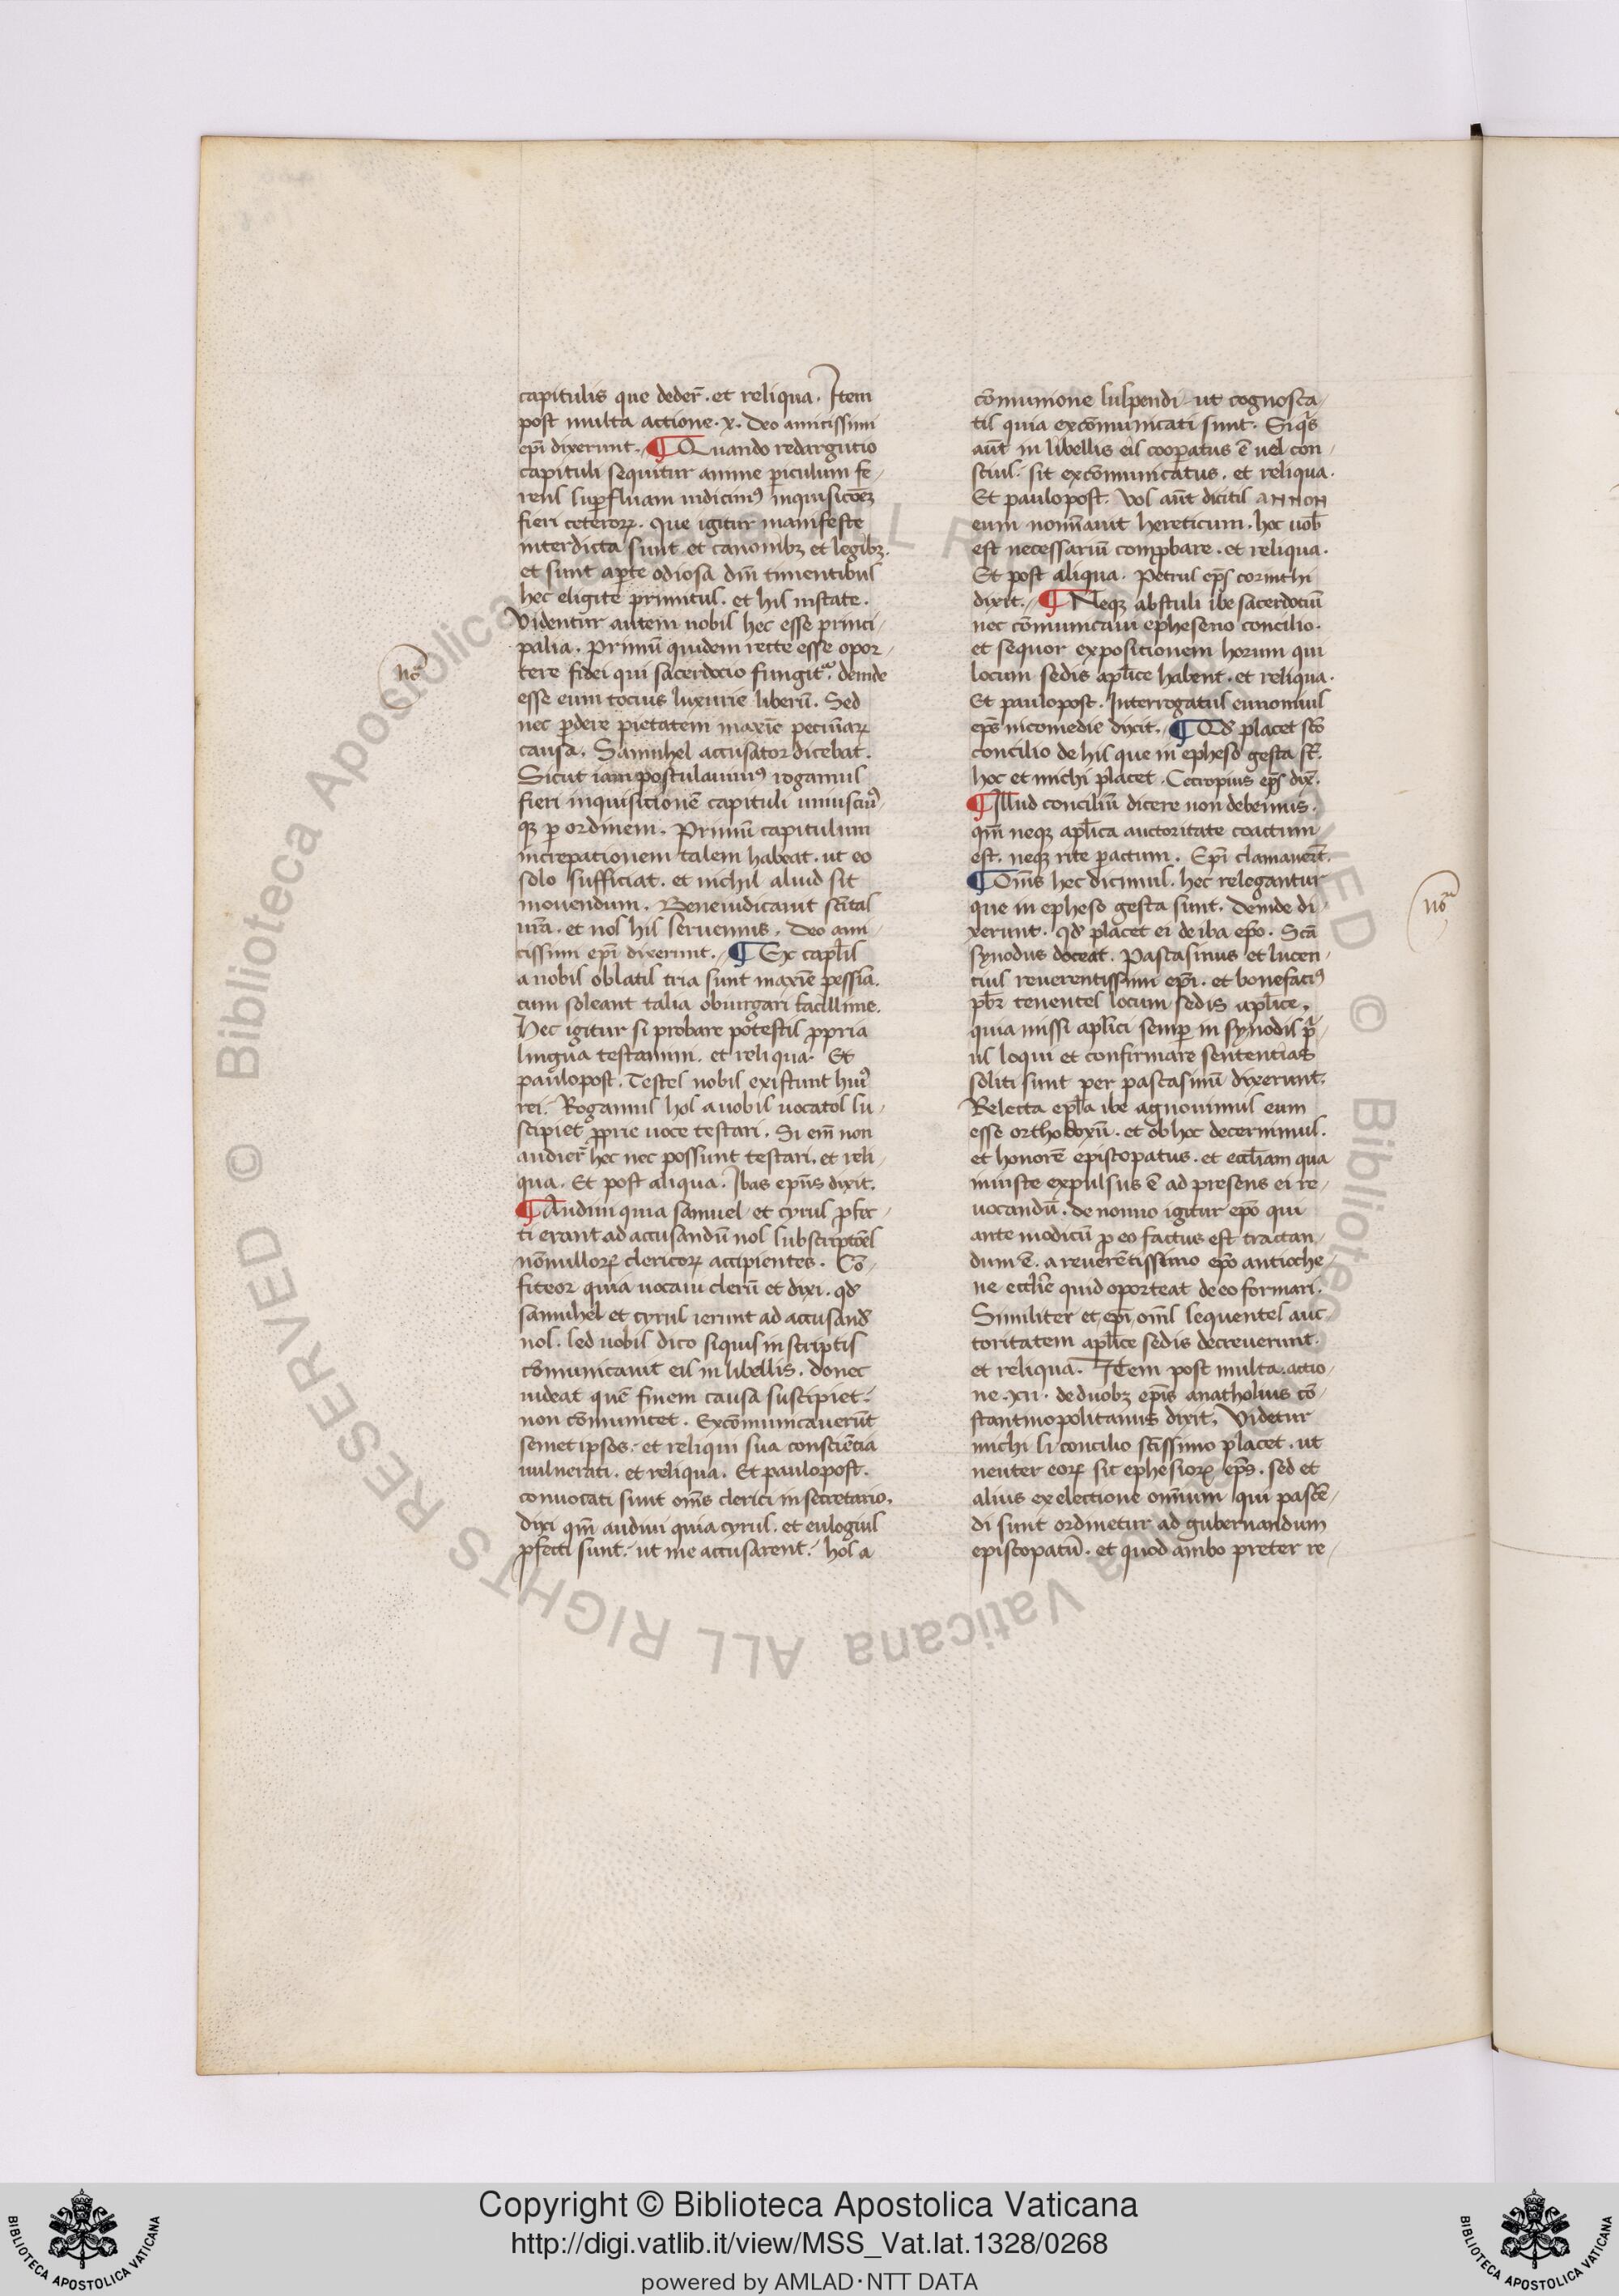 capitulis que dedeɼ̄. et reliqua. Item
post multa actione. x. Deo amicissimi
ep̄i dixerunt. ¶ Quando redargutio
capituli sequitur anime ꝑiculum fe-
rens suꝑfluam iudicimꝰ inquisicōēꝫ
fieri ceteroꝝ. Que igitur manifeste
interdicta sunt et canonibꝫ et legibꝫ.
et sunt aꝑte odiosa dn̄m timentibus
hec eligite primitus. et his instate.
Videntur autem nobis hec esse princi-
palia. Primū quidem recte esse opor-
tere fidei qui sacerdocio fungitᷣ. deinde
esse eum tocius luxurie liberū. Sed
nec ꝑdere pietatem maxīe pecuniaꝝ
causa. Samuhel accusator dicebat.
Sicut iam postulauimꝰ rogamus
fieri inquisitionē capituli uniuscuiꝰ-
qꝫ ꝑ ordinem. Primū capitulum
increpationem talem habeat. ut eo
solo sufficiat. et nichil aliud sit
mouendum. Bene iudicauit scītas
ur̄a. et nos his seruemus. Deo ami-
cissimi ep̄i dixerunt. ¶ Ex capl̄is
a nobis oblatis tria sunt maxīe pessīa.
cum soleant talia obiurgari facillime.
Hec igitur si probare potestis ꝓpria
lingua testamini. et reliqua. Et
paulopost. Testes nobis existunt huiꝰ
rei. Rogamus hos a uobis uocatos su-
scipiet ꝓprie uoce testari. Si em̄ non
audier̄ hec nec possunt testari. et reli-
qua. Et post aliqua. Ibas epūs dixit.
¶ Audiui quia samuel et cyrus ꝓfec-
ti erant ad accusandū nos subscriptōēs
nōnulloꝝ clericoꝝ accipientes. Cō-
fiteor quia uocaui clerū et dixi. qd̄
samuhel et cyrus ierunt ad accusand̄
nos. sed uobis dico siquis in scriptis
cōmunicauit eis in libellis. donec
uideat quē finem causa suscipiet.
non cōmunicet. Excōmunicauerūt
semet ipsos. et reliqui sua consciētia
uulnerati. et reliqua. Et paulopost.
conuocati sunt om̄s clerici in secretario.
dixi qm̄ audiui quia cyrus. et eulogius
ꝓfecti sunt. ut me accusarent. hos a
noᷓ
cōmunione suspendi. ut cognosca-
tis quia excōmunicati sunt. Si qͥs
aūt in libellis eis cooꝑatus ē uel con-
scius. sit excōmunicatus. et reliqua.
Et paulopost. Vos aūt dicitis annon
eum nomīauit hereticum. hoc uob̄
est necessariū comꝓbare. et reliqua.
Et post aliqua. Petrus ep̄s corinthi
dixit. ¶ Neqꝫ abstuli ibe sacerdociū
nec cōmunicaui epheseno concilio.
et sequor expositionem horum qui
locum sedis apl̄ice habent. et reliqua.
Et paulopost. Interrogatus eunomius
ep̄s nicomedie dixit. ¶ Qd̄ placet scō
concilio de his que in epheso gesta st̄.
hoc et michi placet. Cecropius ep̄s dix̄.
¶ Illud conciliū dicere non debemus.
qm̄ neqꝫ apl̄ica auctoritate coactum
est. neqꝫ rite ꝑactum. Ep̄i clamauer̄t.
¶ Om̄s hec dicimus. hec relegantur
que in epheso gesta sunt. Deinde di-
xerunt. qd̄ placet ei de iba ep̄o. Scā
synodus doceat. Pascasinus et lucen-
tius reuerentissimi ep̄i. et bonefaciꝰ
pb̄r tenentes locum sedis apl̄ice.
quia missi apl̄ici semꝑ in synodis pͥ-
us loqui et confirmare sententias
soliti sunt per pascasinū dixerunt.
Relecta epl̄a ibe agnouimus eum
esse orthodoxū. et ob hoc decernimus.
et honorē episcopatus. et eccl̄iam qua
iniuste expulsus ē ad presens ei re-
uocandū. de nonno igitur ep̄o qui
ante modicū ꝓ eo factus est tractan-
dum ē. a reuerētissimo ep̄o antioche-
ne eccl̄ie quid oporteat de eo formari.
Similiter et ep̄i om̄s sequentes auc-
toritatem apl̄ice sedis decreuerunt.
et reliqua. Item post multa. actio-
ne. xii. de duobꝫ ep̄is anatholius cō-
stantinopolitanus dixit. Videtur
michi si concilio scīssimo placet. ut
neuter eoꝝ sit ephesioꝝ ep̄s. sed et
alius ex electione omīum qui pascē-
di sunt ordinetur ad gubernandum
episcopatū. et quod ambo preter re-
noᷓ
© Biblioteca Apostolica Vaticana ALL RIGHTS RESERVED
Copyright © Biblioteca Apostolica Vaticana
http://digi.vatlib.it/view/MSS_Vat.lat.1328/0268
powered by AMLAD·NTT DATA
BIBLIOTECA APOSTOLICA VATICANA
BIBLIOTECA APOSTOLICA VATICANA